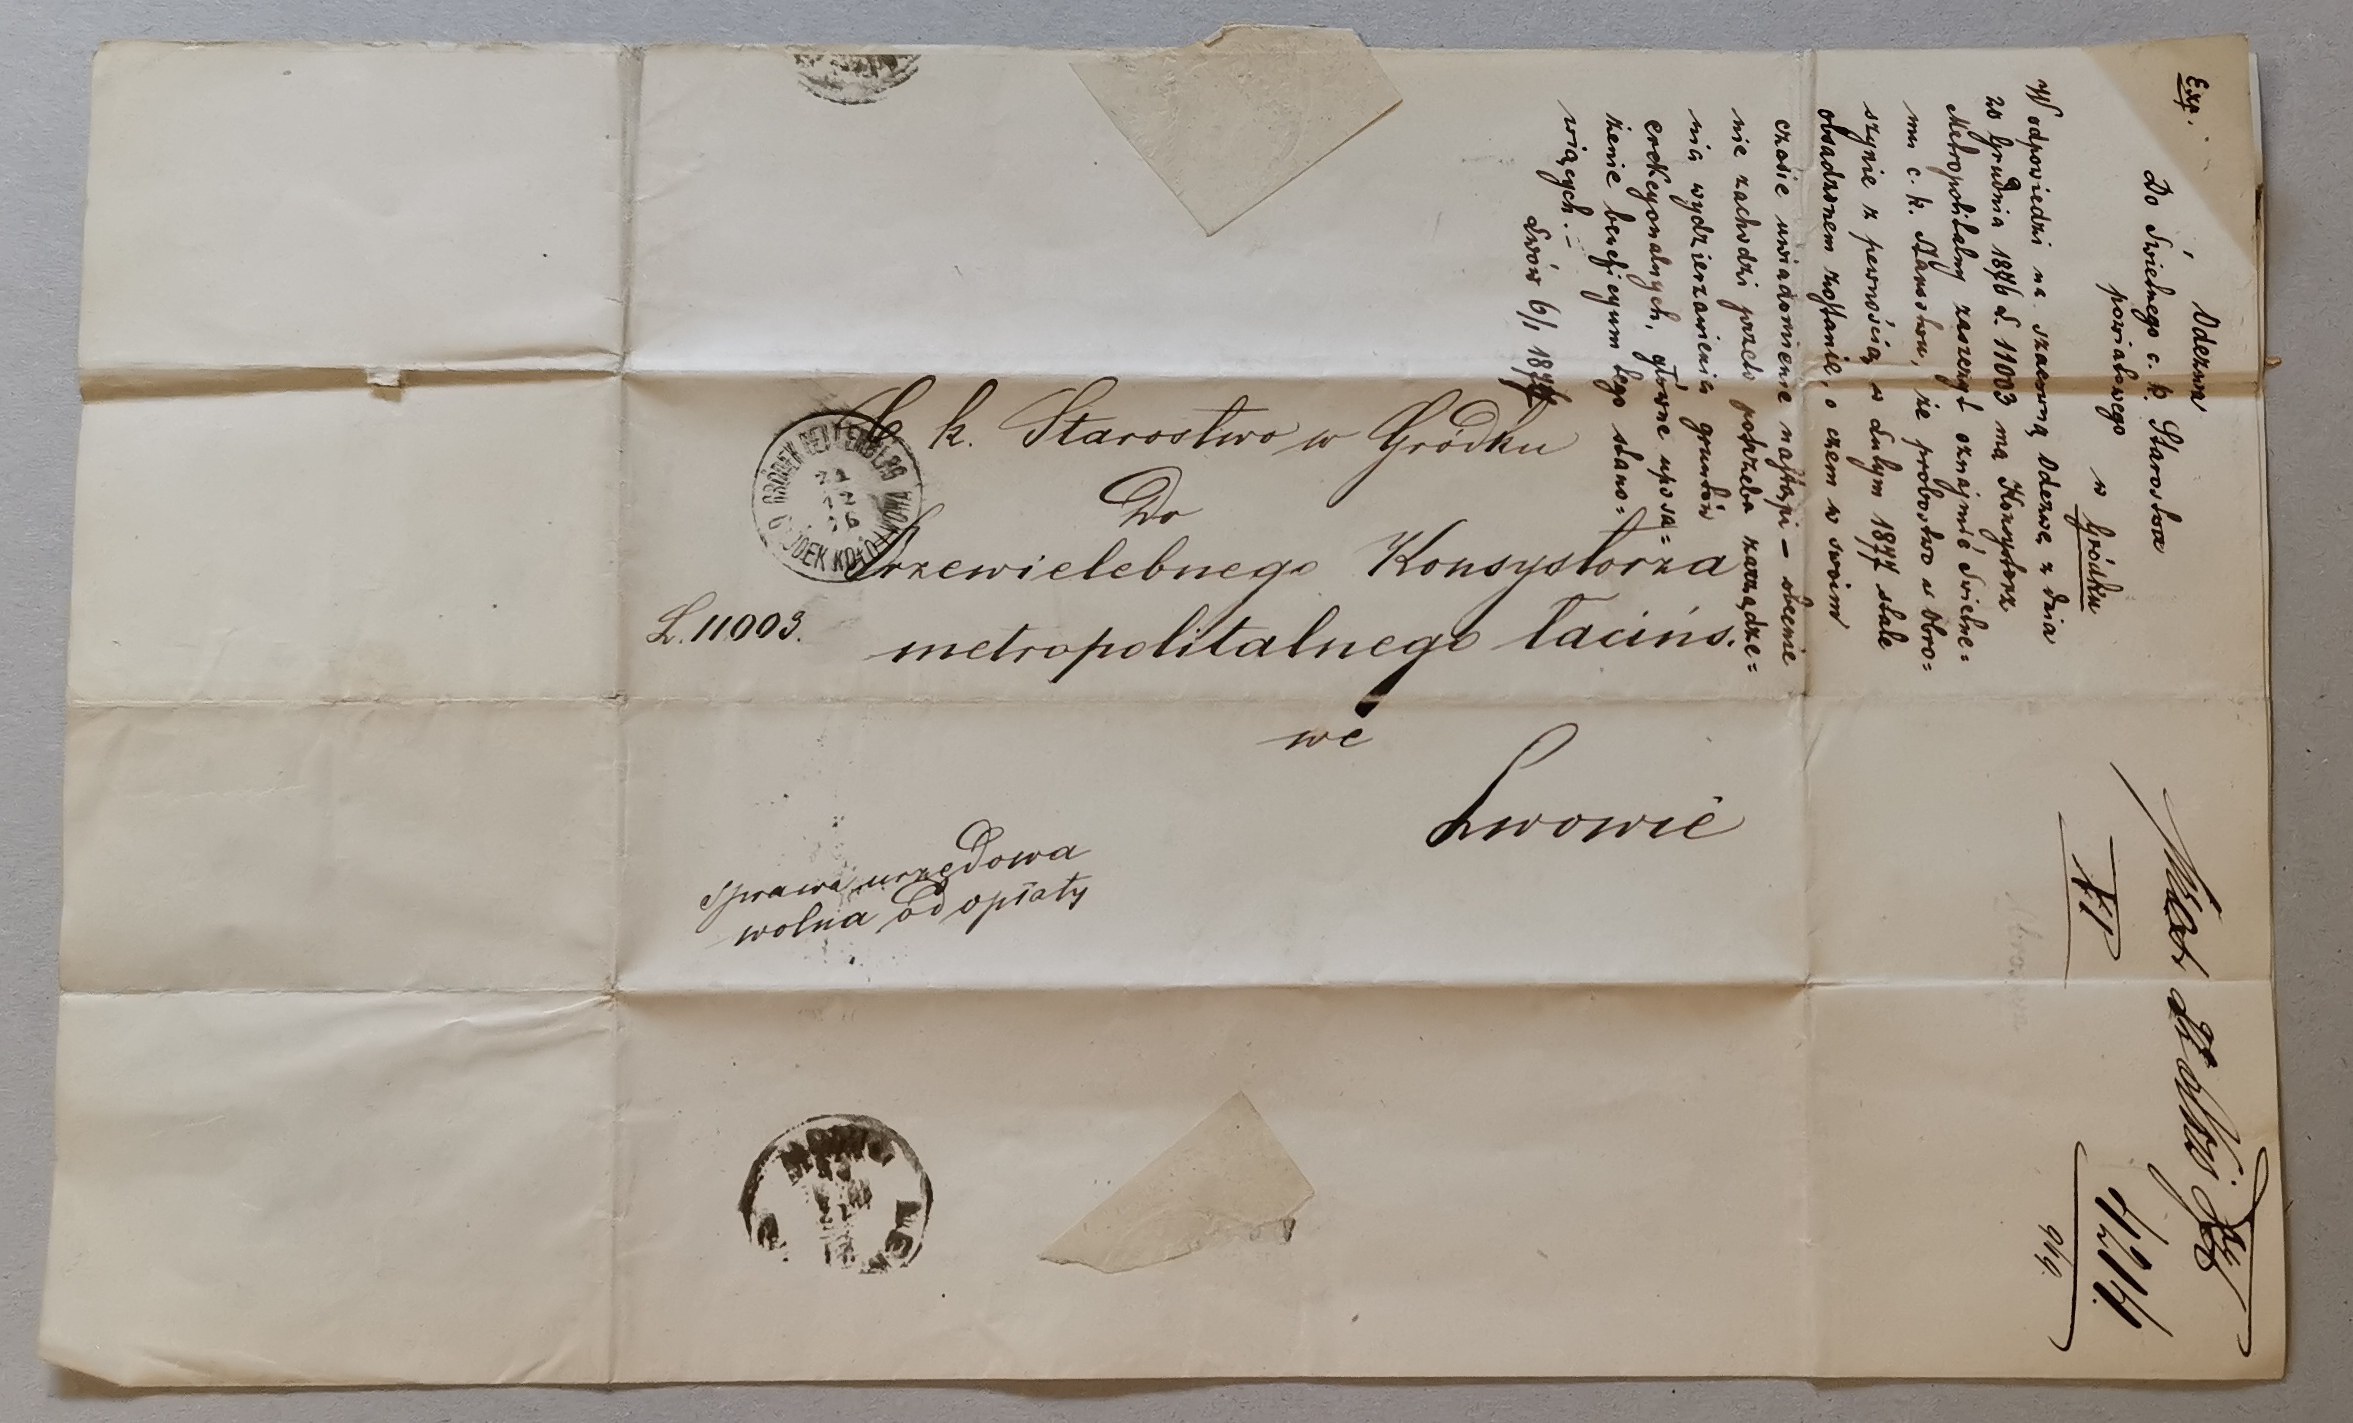 C. k. Starostwo w Gródku
Do
Przewielebnego Konsystorza
metropolitalnego łacińs.
we
Lwowie
L. 11003.
sprawa urzędowa
wolna od opłaty
GRÓDEK BEI LEMBERG
GRÓDEK KOŁO LWOWA
Exp.
Odezwa
Do Świetnego c. k. Starostwa
powiatowego
w Gródku
W odpowiedzi na szacowną Odezwę z dnia
20 Grudnia 1876 L. 11003 ma Konsystorz
Metropolitalny zaszczyt oznajmić Świetne=
mu c. k. Starostwu, że probostwo w Obro=
szynie z pewnością w Lutym 1877 stale
obsadzonem zostanie, o czem w swoim
czasie uwiadomienie nastąpi – obecnie
nie zachodzi przeto potrzeba zarządze=
nia wydzierzawienia gruntów
erekcyonalnych, główne uposa=
żenie beneficyum tego stano=
wiących. –
Lwów 6/1 1877